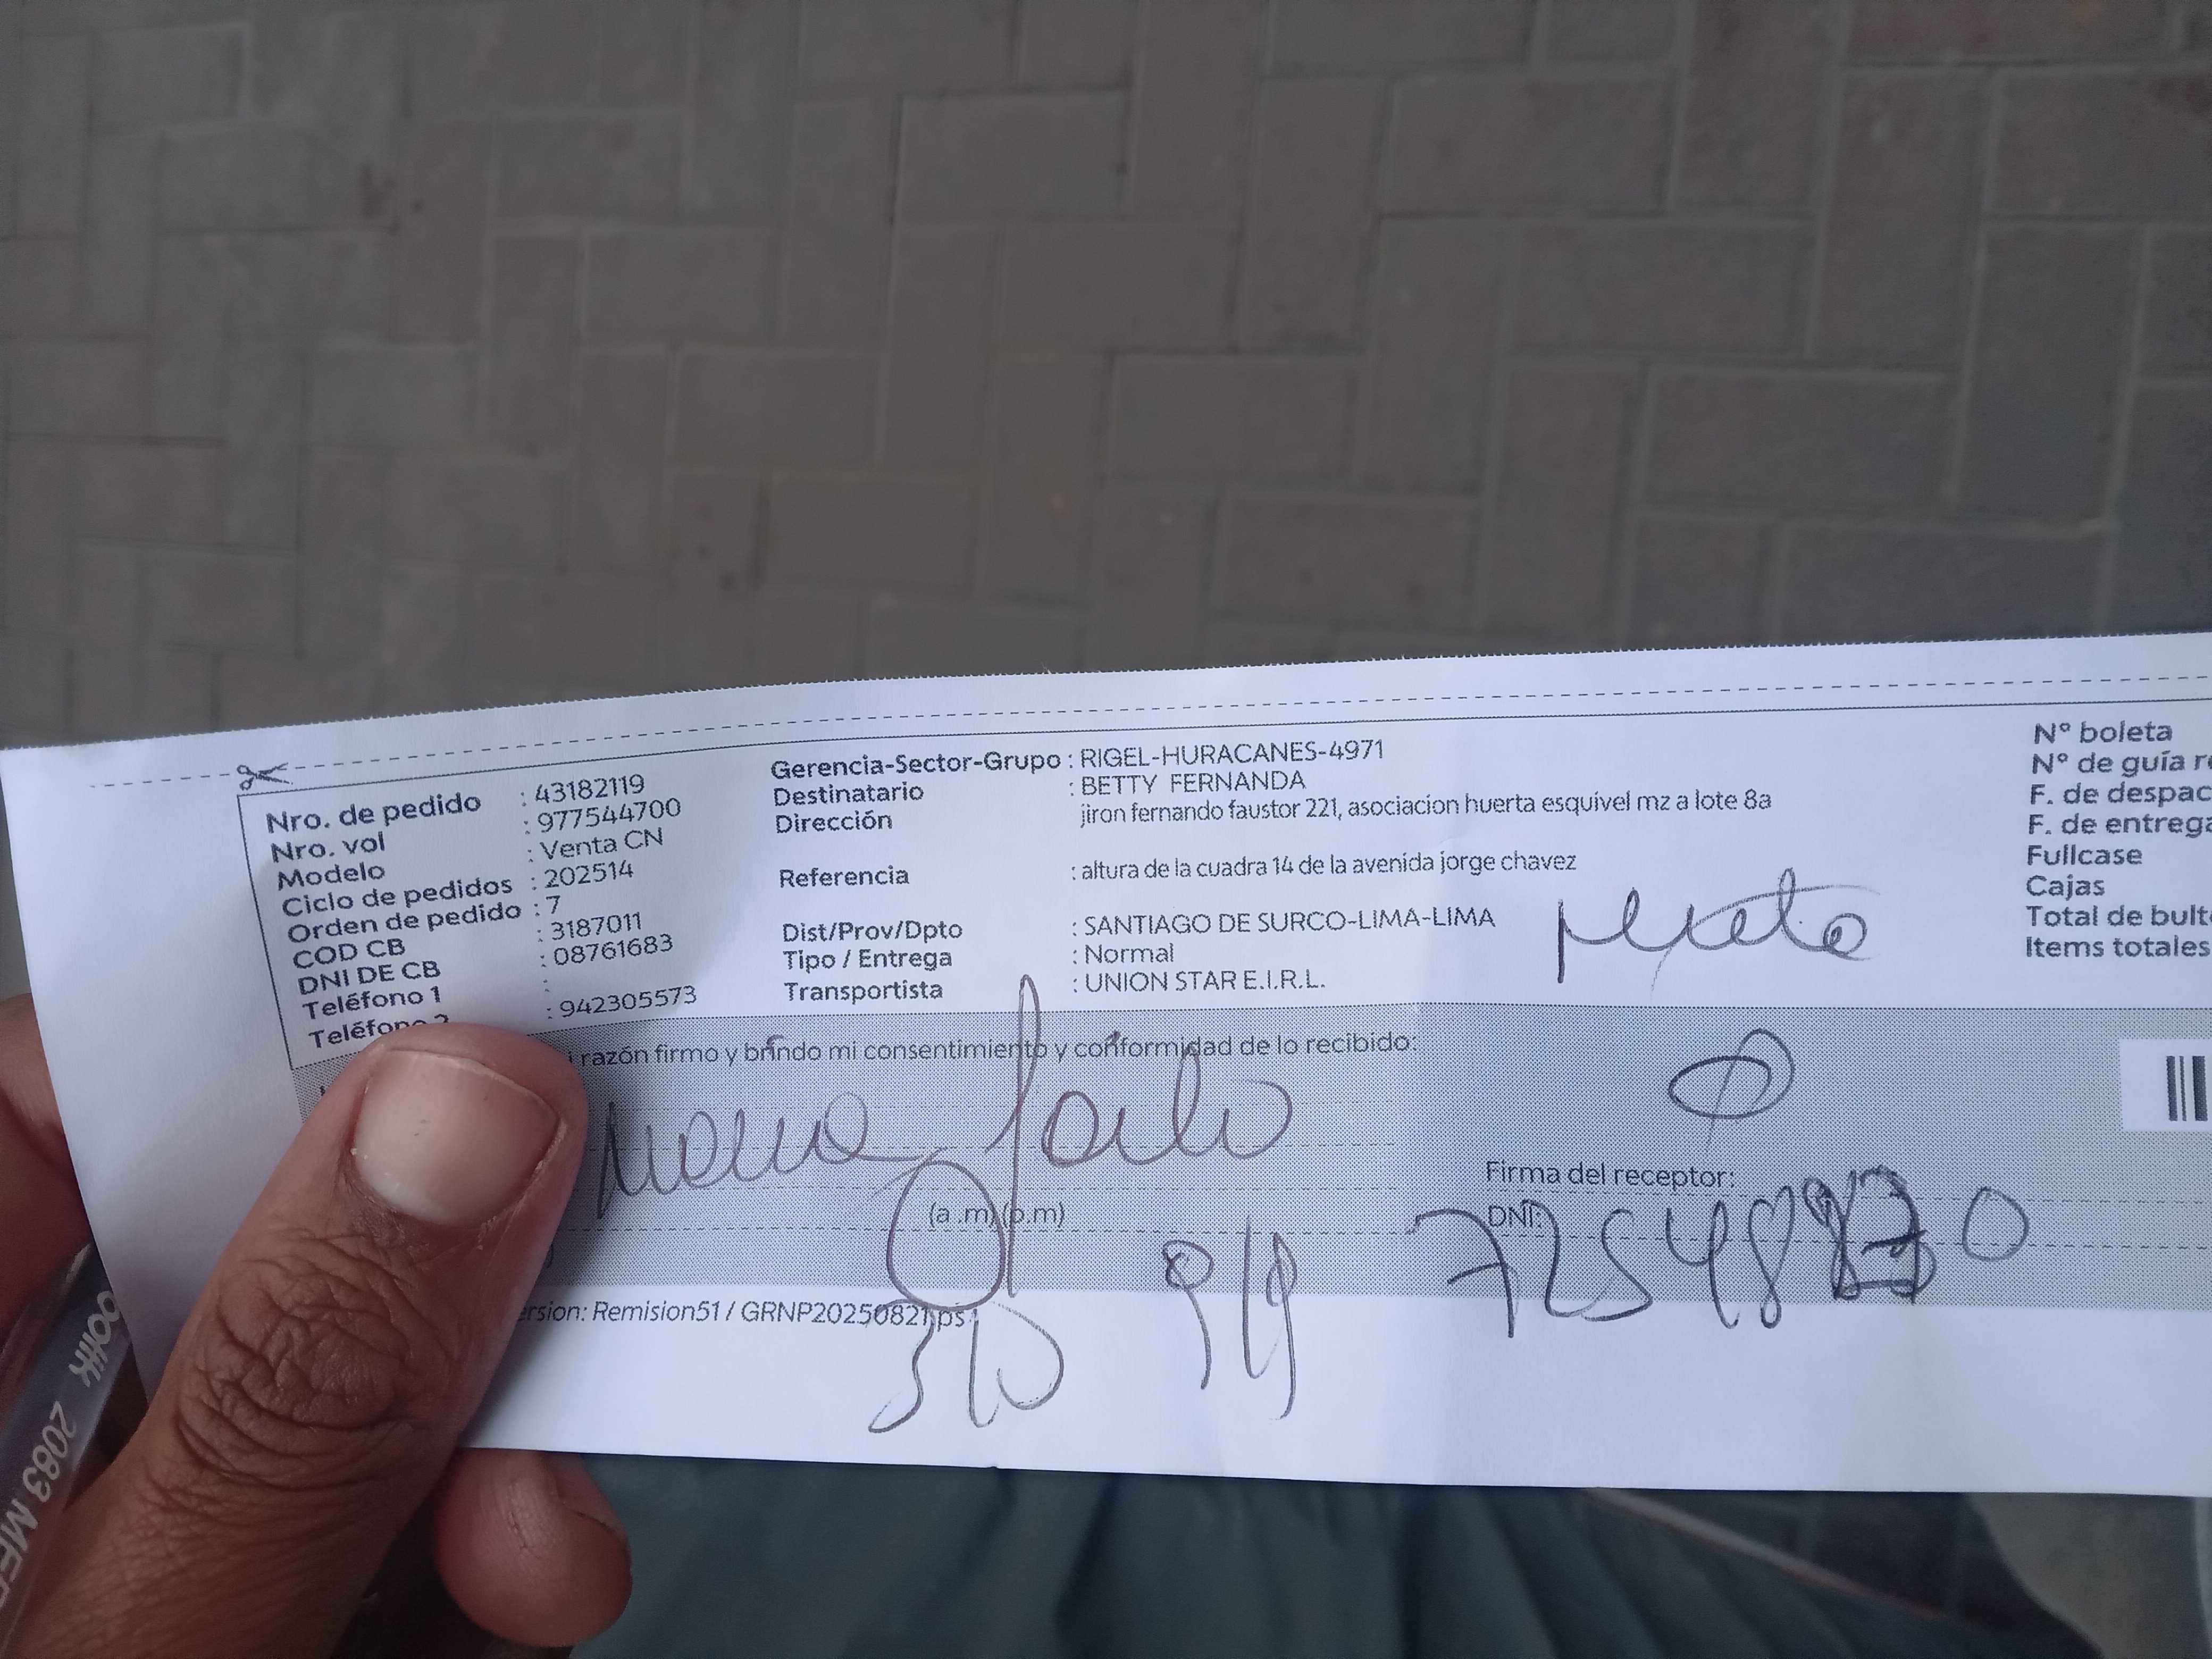 Nro. de pedido : 43182119
Nro. vol : 977544700
Modelo : Venta CN
Ciclo de pedidos : 202514
Orden de pedido : 7
COD CB : 3187011
DNI DE CB : 08761683
Teléfono 1 :
Teléfono 2 : 942305573
Gerencia-Sector-Grupo : RIGEL-HURACANES-4971
Destinatario : BETTY FERNANDA
Dirección jiron fernando faustor 221, asociacion huerta esquivel mz a lote 8a
Referencia : altura de la cuadra 14 de la avenida jorge chavez
Dist/Prov/Dpto : SANTIAGO DE SURCO-LIMA-LIMA
Tipo / Entrega : Normal
Transportista : UNION STAR E.I.R.L.
Nº boleta
Nº de guía
F. de
F. de
Fullcase
Cajas
Total de
Items totales
razón firmo y brindo mi consentimiento y conformidad de lo recibido:
(a .m) (p.m)
Firma del receptor:
DNI:
Remision51 / GRNP20250821.ps
2083